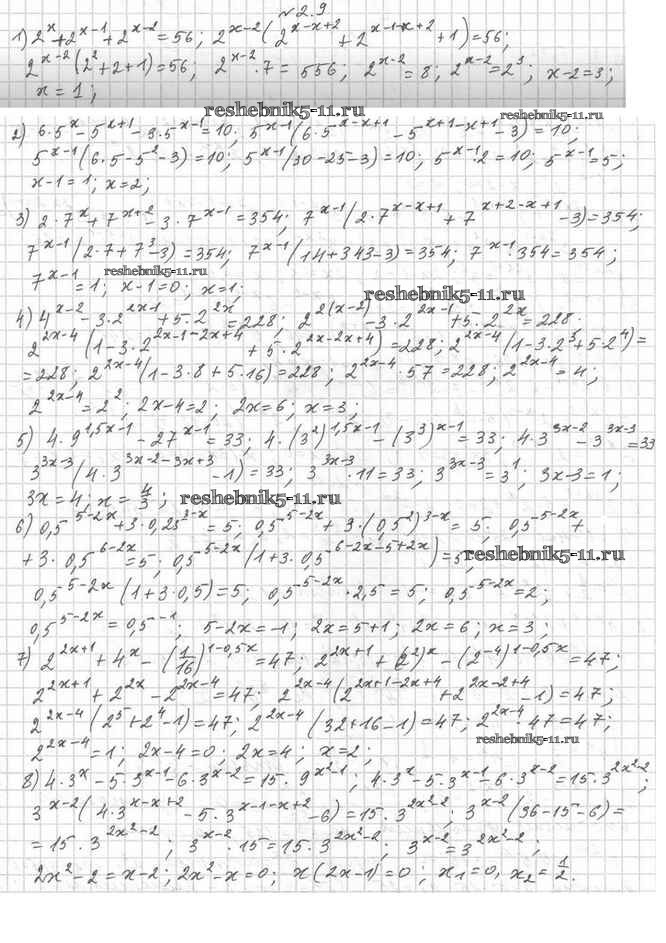 №2.9
1) 2^x + 2^{x-1} + 2^{x-2} = 56; 2^{x-2}(2^{x-x+2} + 2^{x-1-x+2} + 1) = 56;
2^{x-2}(2^2+2+1) = 56; 2^{x-2}·7 = 556; 2^{x-2} = 8; 2^{x-2} = 2^3; x-2 = 3;
x = 1;
reshebnik5-11.ru
reshebnik5-11.ru
2) 6·5^x - 5^{x+1} - 3·5^{x-1} = 10; 5^{x-1}(6·5^{x-x+1} - 5^{x+1-x+1} - 3) = 10;
5^{x-1}(6·5-5^2-3) = 10; 5^{x-1}(30-25-3) = 10; 5^{x-1}·2 = 10; 5^{x-1} = 5;
x-1 = 1; x = 2;
3) 2·7^x + 7^{x+2} - 3·7^{x-1} = 354; 7^{x-1}(2·7^{x-x+1} + 7^{x+2-x+1} - 3) = 354;
7^{x-1}(2·7+7^3-3) = 354; 7^{x-1}(14+343-3) = 354; 7^{x-1}·354 = 354;
7^{x-1} = 1; x-1 = 0; x = 1;
reshebnik5-11.ru
reshebnik5-11.ru
4) 4^{x-2} - 3·2^{2x-1} + 5·2^{2x} = 228; 2^{2(x-2)} - 3·2^{2x-1} + 5·2^{2x} = 228.
2^{2x-4}(1-3·2^{2x-1-2x+4} + 5·2^{2x-2x+4}) = 228; 2^{2x-4}(1-3·2^3+5·2^4) =
= 228; 2^{2x-4}(1-3·8+5·16) = 228; 2^{2x-4}·57 = 228; 2^{2x-4} = 4;
2^{2x-4} = 2^2; 2x-4 = 2; 2x = 6; x = 3;
5) 4·9^{1,5x-1} - 27^{x-1} = 33; 4·(3^2)^{1,5x-1} - (3^3)^{x-1} = 33; 4·3^{3x-2} - 3^{3x-3} = 33
3^{3x-3}(4·3^{3x-2-3x+3} - 1) = 33; 3^{3x-3}·11 = 33; 3^{3x-3} = 3^1; 3x-3 = 1;
3x = 4; x = 4/3;
reshebnik5-11.ru
6) 0,5^{5-2x} + 3·0,25^{3-x} = 5; 0,5^{5-2x} + 3·(0,5^2)^{3-x} = 5; 0,5^{5-2x} +
+ 3·0,5^{6-2x} = 5; 0,5^{5-2x}(1+3·0,5^{6-2x-5+2x}) = 5;
reshebnik5-11.ru
0,5^{5-2x}(1+3·0,5) = 5; 0,5^{5-2x}·2,5 = 5; 0,5^{5-2x} = 2;
0,5^{5-2x} = 0,5^{-1}; 5-2x = -1; 2x = 5+1; 2x = 6; x = 3;
7) 2^{2x+1} + 4^x - (1/16)^{1-0,5x} = 47; 2^{2x+1} + (2^2)^x - (2^{-4})^{1-0,5x} = 47;
2^{2x+1} + 2^{2x} - 2^{2x-4} = 47; 2^{2x-4}(2^{2x+1-2x+4} + 2^{2x-2+4} - 1) = 47;
2^{2x-4}(2^5+2^4-1) = 47; 2^{2x-4}(32+16-1) = 47; 2^{2x-4}·47 = 47;
2^{2x-4} = 1; 2x-4 = 0; 2x = 4; x = 2;
reshebnik5-11.ru
8) 4·3^x - 5·3^{x-1} - 6·3^{x-2} = 15·9^{x^2-1}; 4·3^x - 5·3^{x-1} - 6·3^{x-2} = 15·3^{2x^2-2};
3^{x-2}(4·3^{x-x+2} - 5·3^{x-1-x+2} - 6) = 15·3^{2x^2-2}; 3^{x-2}(36-15-6) =
= 15·3^{2x^2-2}; 3^{x-2}·15 = 15·3^{2x^2-2}; 3^{x-2} = 3^{2x^2-2};
2x^2-2 = x-2; 2x^2-x = 0; x(2x-1) = 0; x_1 = 0, x_2 = 1/2.